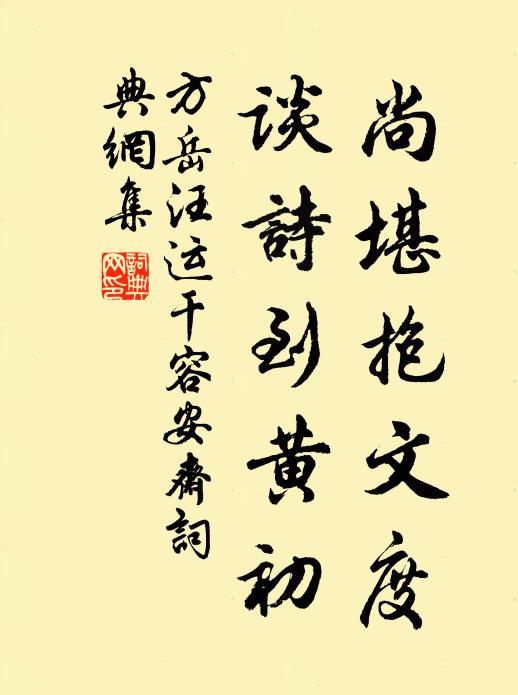 尚堪抱文度
談詩到黄初
方岳汪运干容安齋詞
典網集
詞典
网印